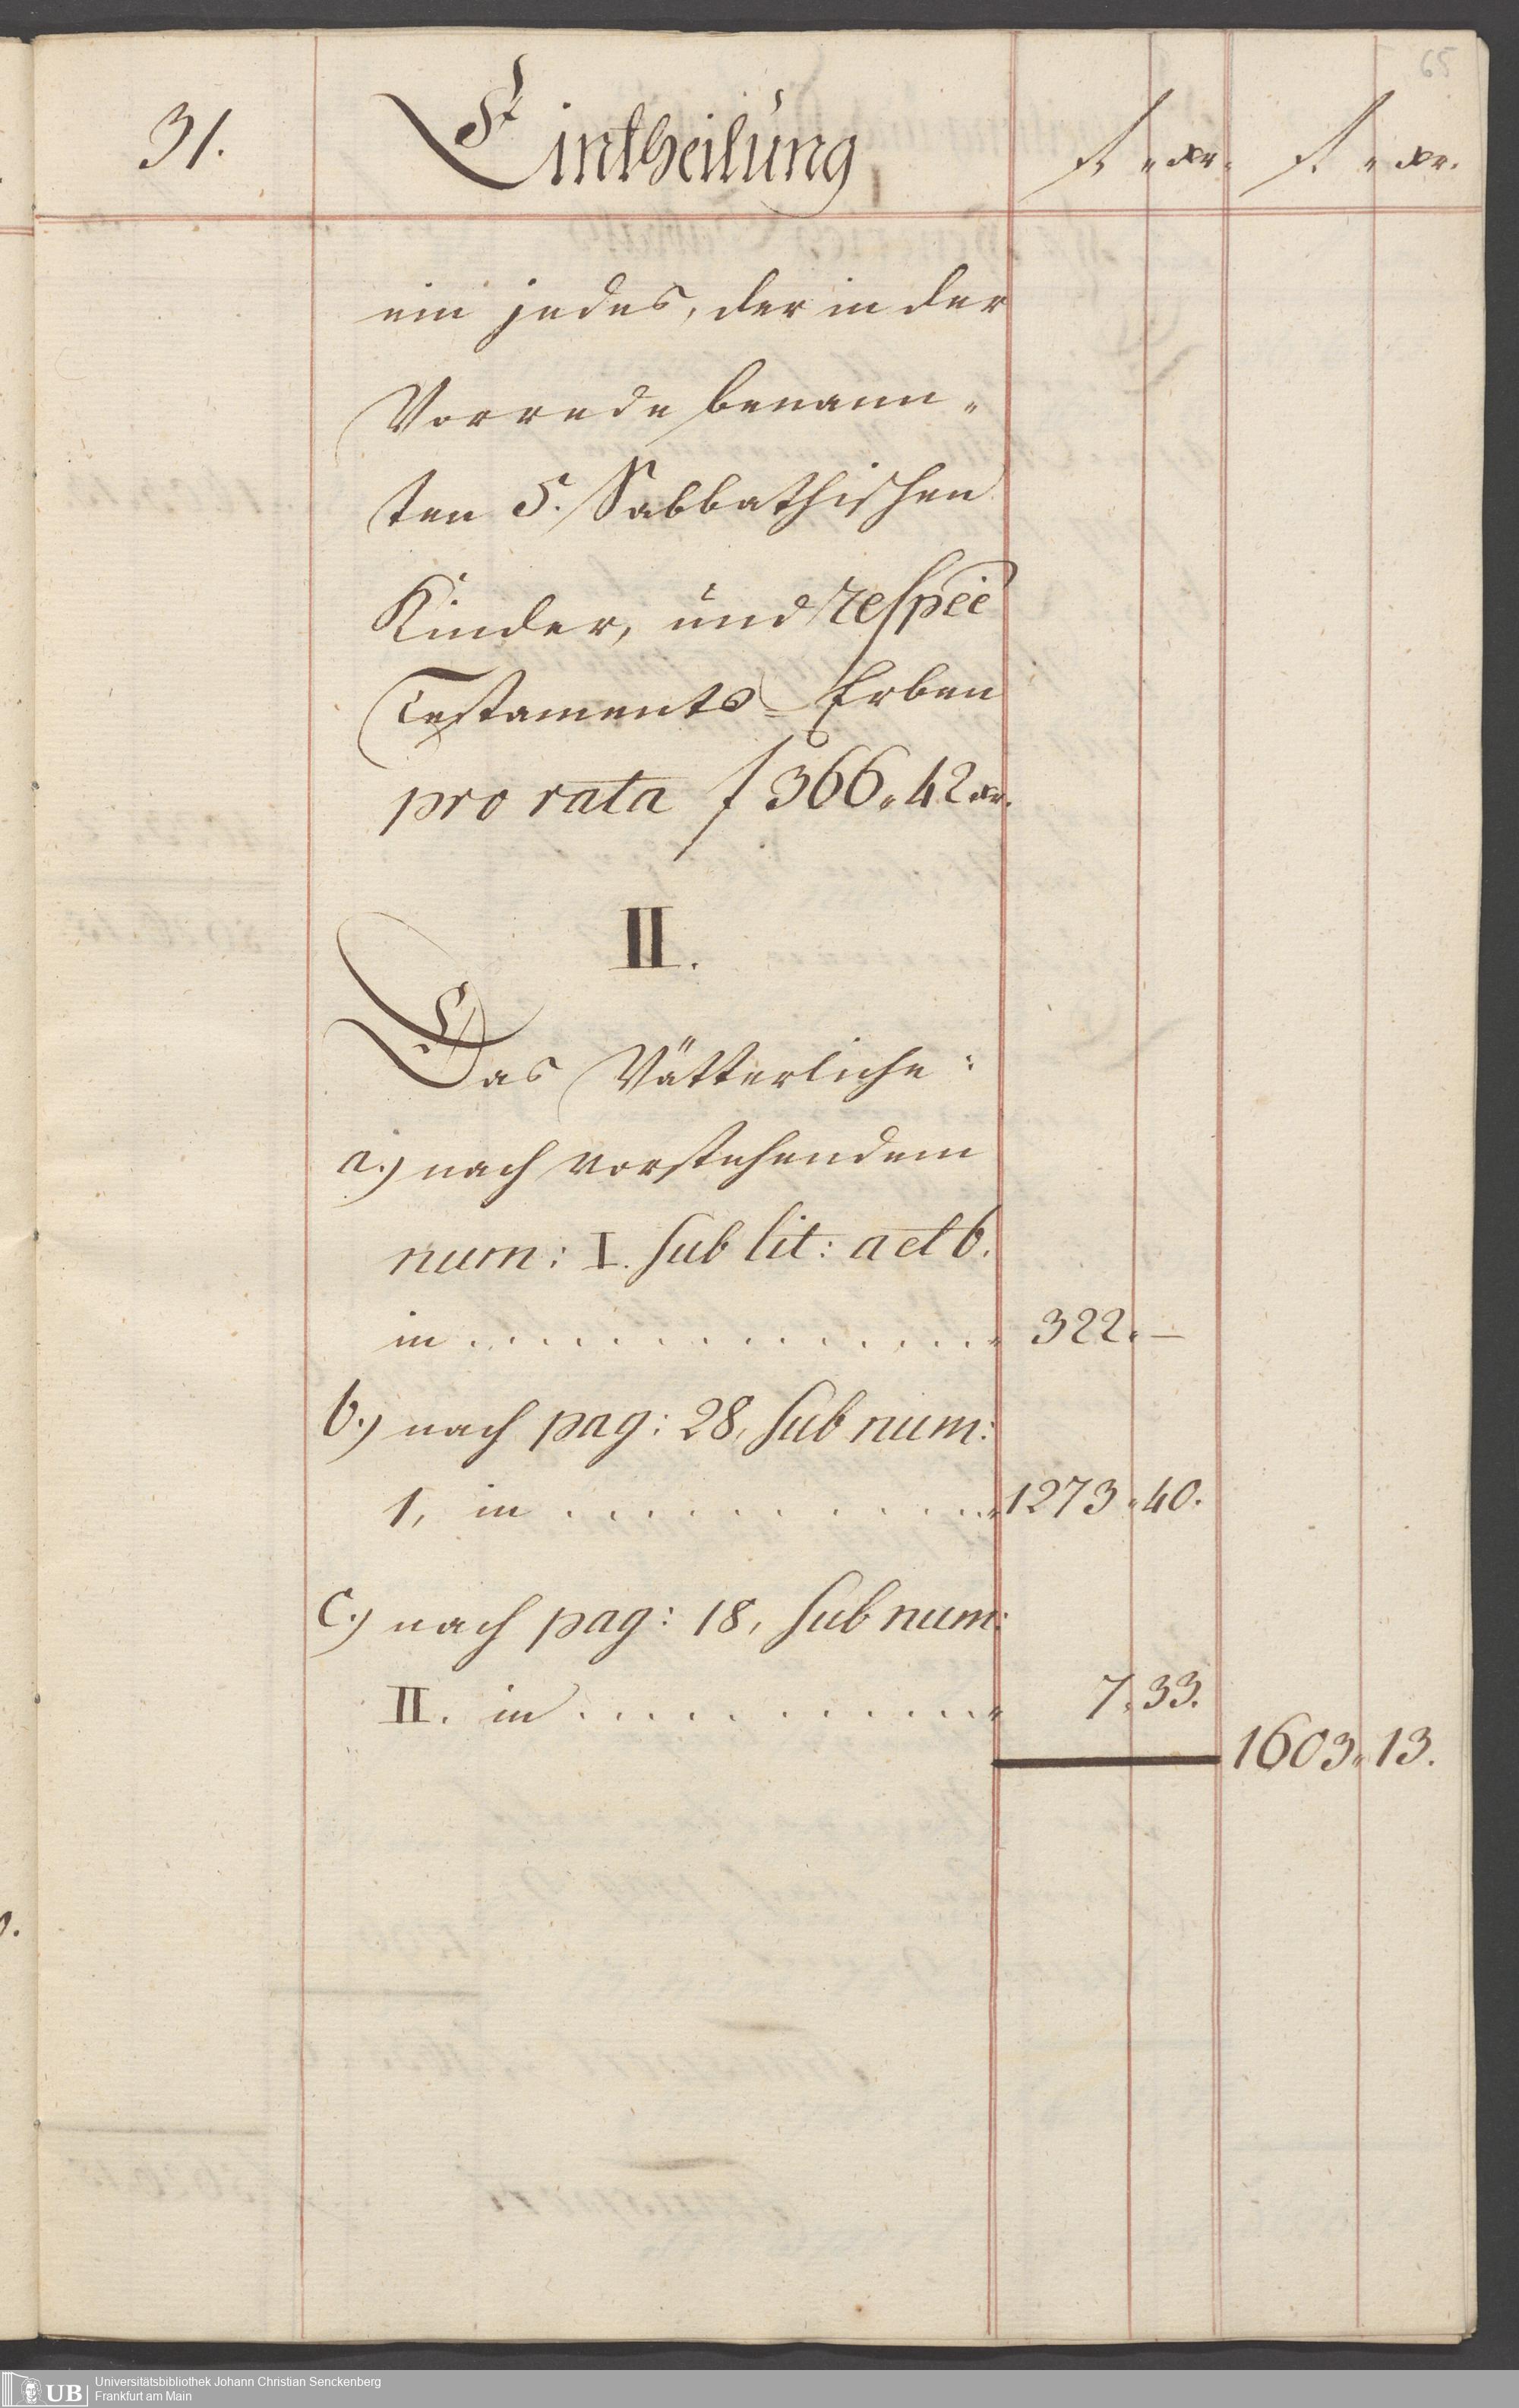 65
31. Eintheilung f. " xr. f. " xr.
ein jedes, der in der
Vorrede benann„
ten 5. Sabbathischen
Kinder, und respèe
Testaments=Erben
pro rata f 366„ 42 xr.
II.
Das Vätterliche:
a.) nach vorstehendem
num: I. sub lit: a et b.
in . . . . . . . . . . . . . . „ 322. —
b.) nach pag: 28, sub num:
1, in . . . . . . . . . . . . „ 1273 „ 40.
c.) nach pag: 18, sub num:
II. in . . . . . . . . . . . . „ 7. 33.
1603„ 13.
UB Universitätsbibliothek Johann Christian Senckenberg
Frankfurt am Main